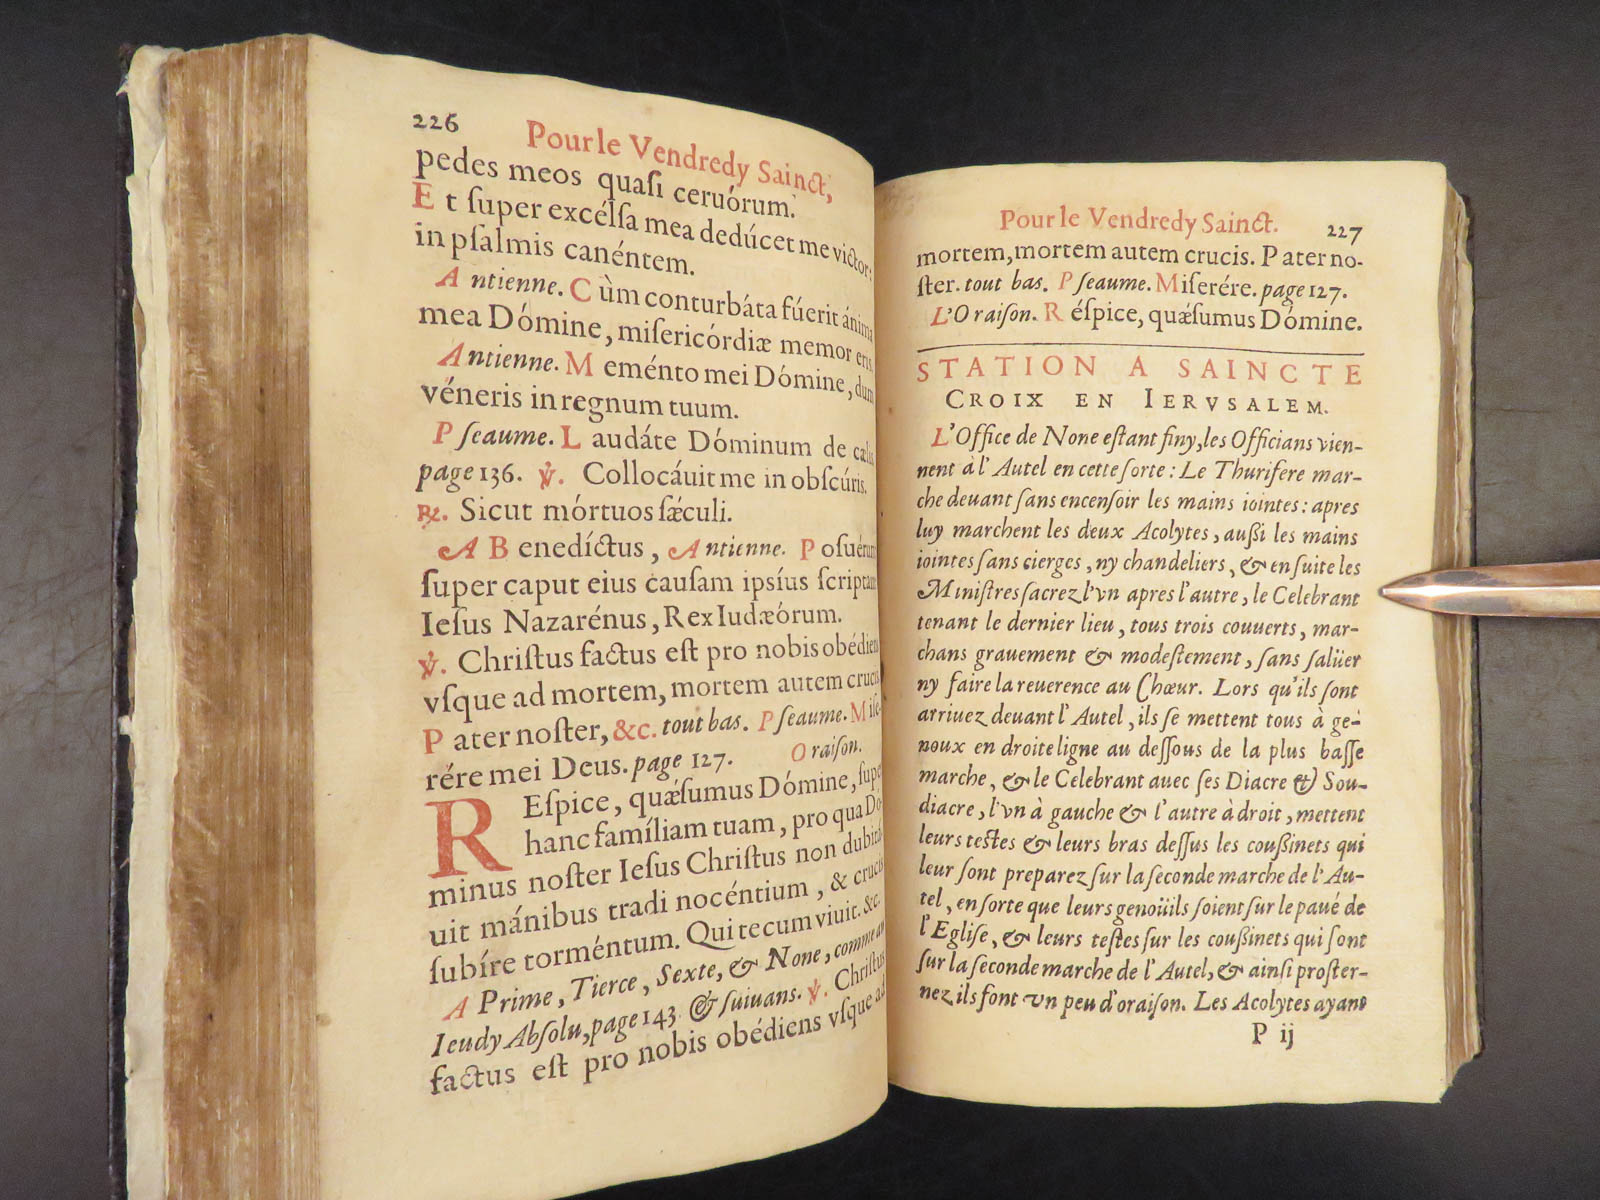 226
Pour le Vendredy Sainct,
pedes meos quasi ceruórum.
Et ſuper excélſa mea dedúcet me victor:
in pſalmis canéntem.
Antienne. Cùm conturbáta fúerit ánima
mea Dómine, miſericórdiæ memor eris.
Antienne. Meménto mei Dómine, dum
véneris in regnum tuum.
Pſeaume. Laudáte Dóminum de cælis
page 136. ℣. Collocáuit me in obſcúris.
℟. Sicut mórtuos ſæculi.
A Benedíctus, Antienne. Poſuérunt
ſuper caput eius cauſam ipsíus ſcriptam
Ieſus Nazarénus, Rex Iudæórum.
℣. Chriſtus factus eſt pro nobis obédiens
vſque ad mortem, mortem autem crucis
Pater noſter, &c. tout bas. Pſeaume. Miſe-
rére mei Deus. page 127. Oraiſon.
REſpice, quæſumus Dómine, ſuper
hanc famíliam tuam, pro qua Dó-
minus noſter Ieſus Chriſtus non dubitá-
uit mánibus tradi nocéntium, & crucis
ſubíre torméntum. Qui tecum viuit. &c.
A Prime, Tierce, Sexte, & None, comme au
Ieudy Abſolu, page 143. & ſuiuans. ℣. Chriſtus
factus eſt pro nobis obédiens vſque ad
Pour le Vendredy Sainct. 227
mortem, mortem autem crucis. Pater no-
ſter. tout bas. Pſeaume. Miſerére. page 127.
L'Oraiſon. Réſpice, quæſumus Dómine.
STATION A SAINCTE
CROIX EN IERVSALEM.
L'Office de None eſtant finy, les Officians vien-
nent à l'Autel en cette ſorte: Le Thurifere mar-
che deuant ſans encenſoir les mains iointes: apres
luy marchent les deux Acolytes, auſſi les mains
iointes ſans cierges, ny chandeliers, & en ſuite les
Miniſtres ſacrez l'vn apres l'autre, le Celebrant
tenant le dernier lieu, tous trois couuerts, mar-
chans grauement & modeſtement, ſans ſalüer
ny faire la reuerence au Chœur. Lors qu'ils ſont
arriuez deuant l'Autel, ils ſe mettent tous à ge-
noux en droite ligne au deſſous de la plus baſſe
marche, & le Celebrant auec ſes Diacre & Sou-
diacre, l'vn à gauche & l'autre à droit, mettent
leurs teſtes & leurs bras deſſus les couſſinets qui
leur ſont preparez ſur la ſeconde marche de l'Au-
tel, en ſorte que leurs genoüils ſoient ſur le paué de
l'Egliſe, & leurs teſtes ſur les couſſinets qui ſont
ſur la ſeconde marche de l'Autel, & ainſi proſter-
nez ils font vn peu d'oraiſon. Les Acolytes ayans
P ij